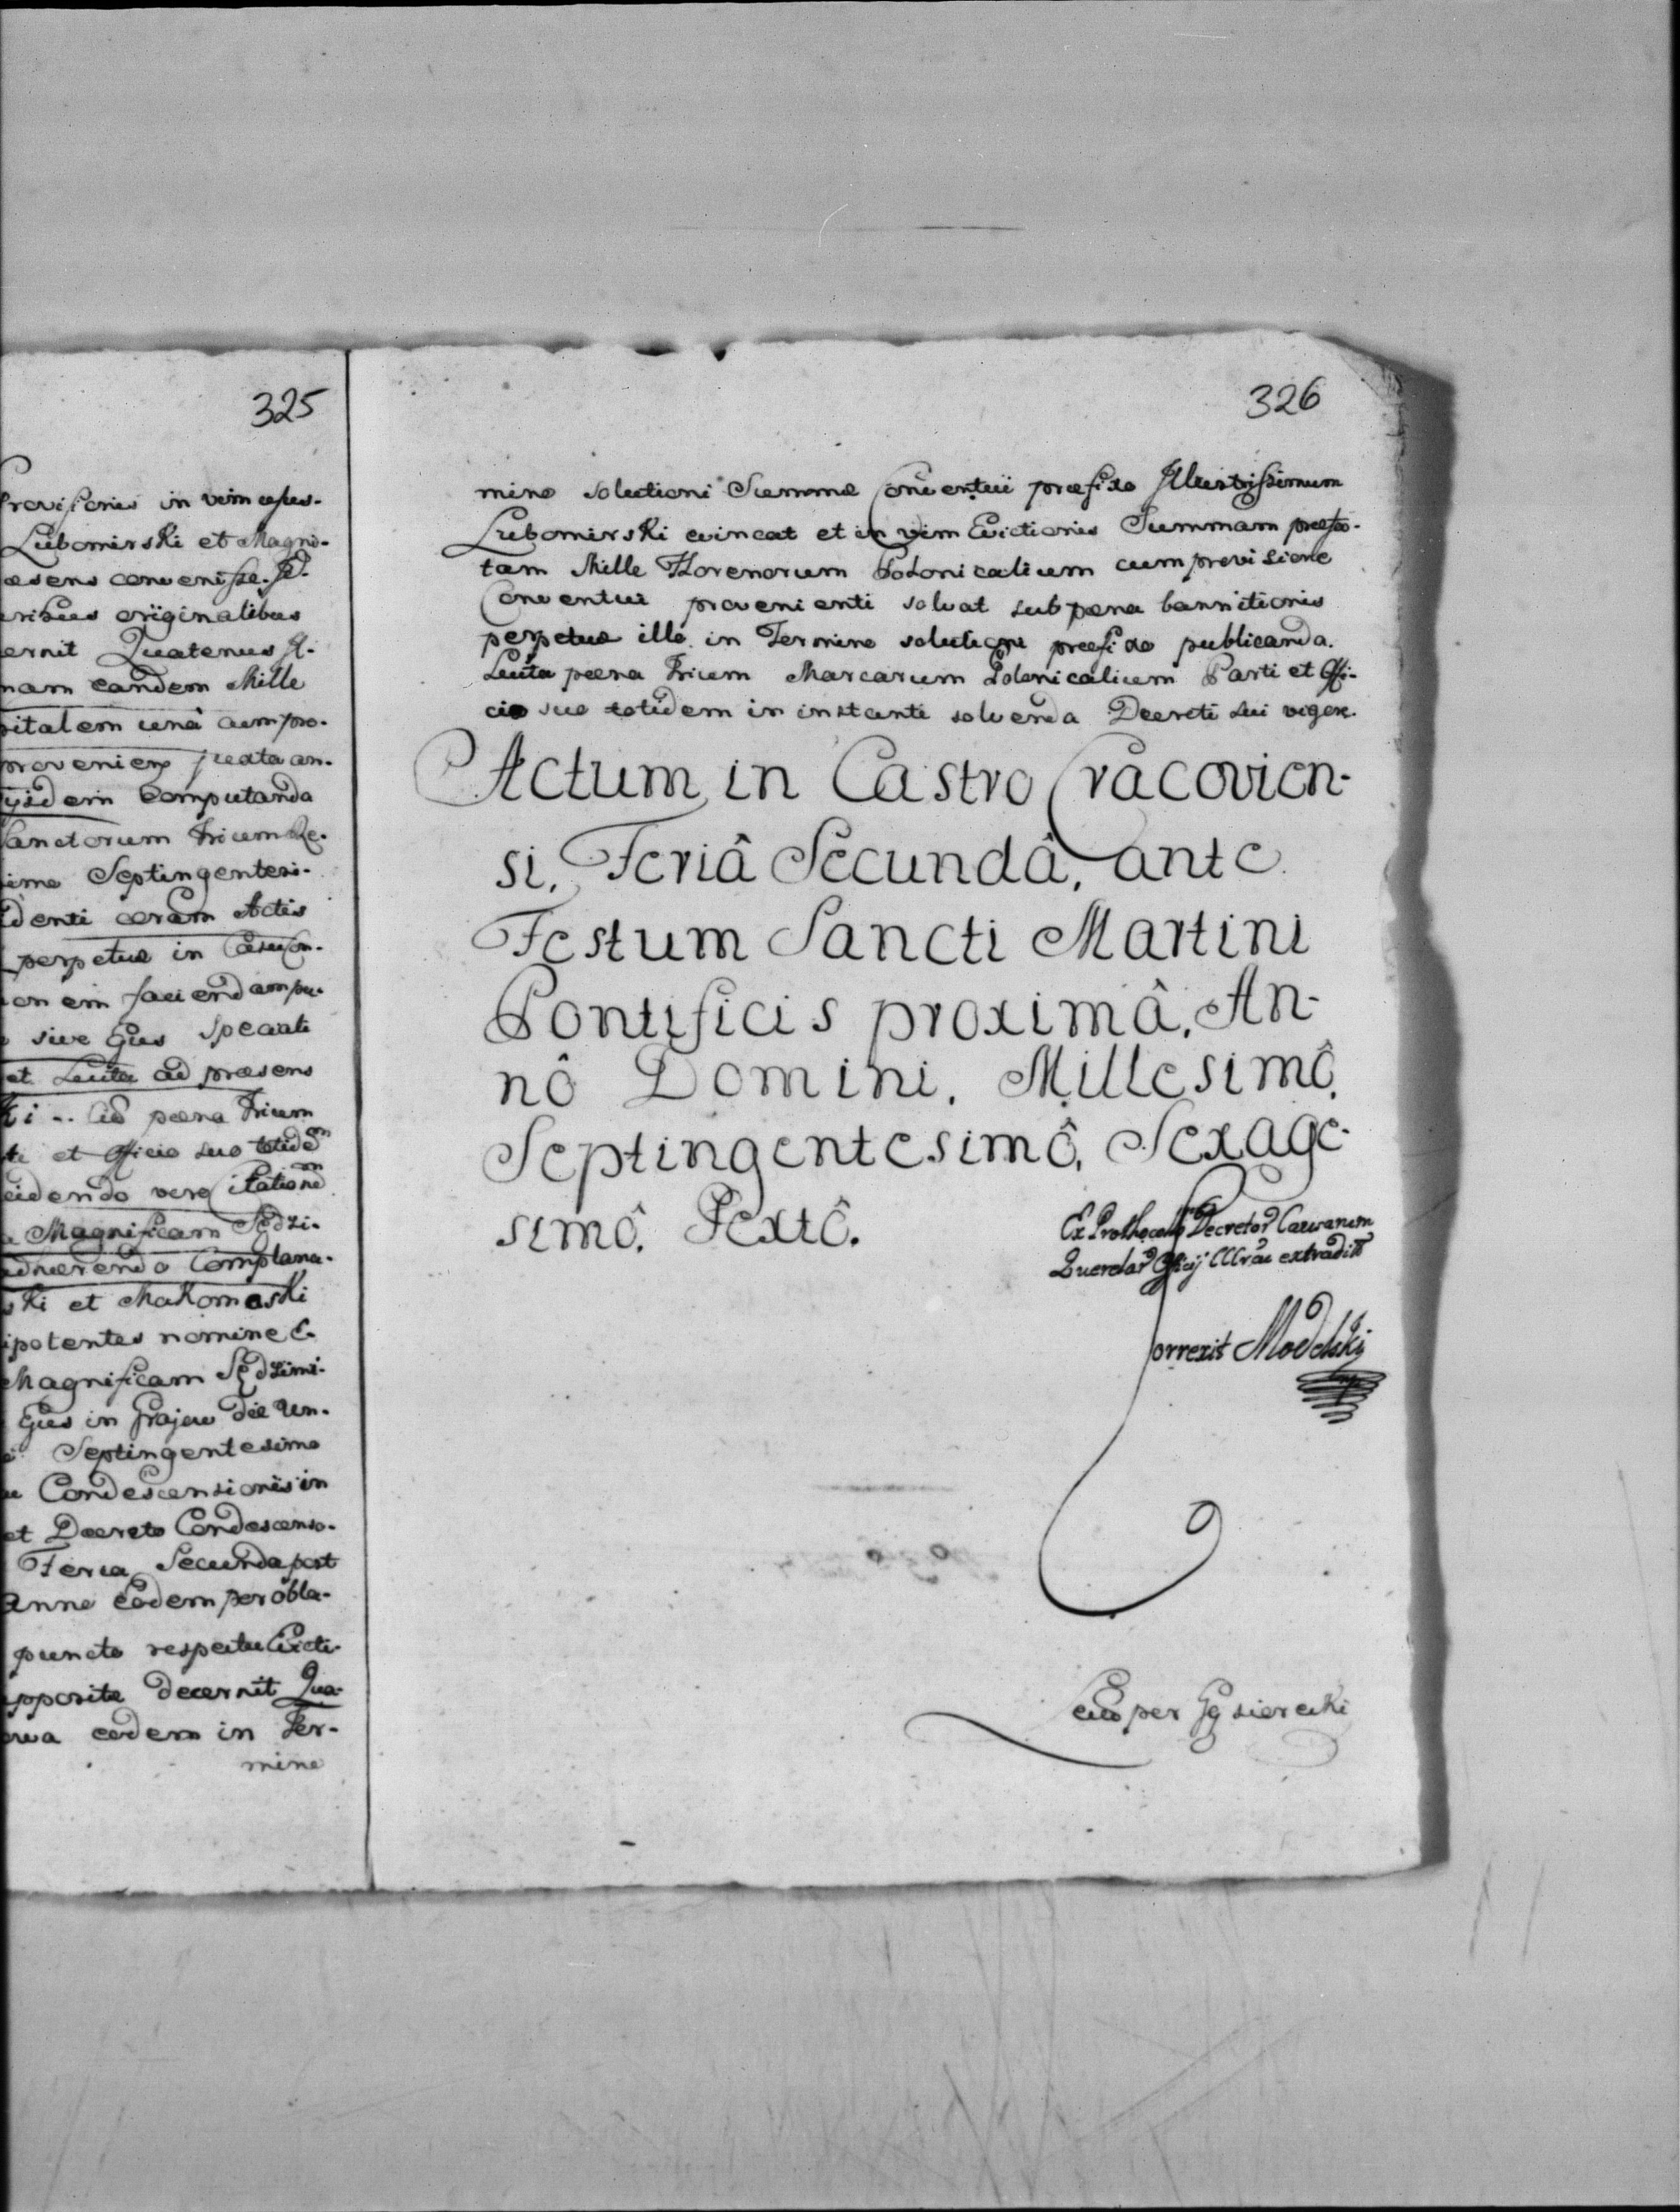 325
Provisionis in vim ejus-
Lubomirski et Magni-
aesens convenisse.
eribus originalibus
ernit Quatenus
nam eandem Mille
pitalem unâ cum pro-
proveniens juxta an-
ijsdem computanda
Sanctorum Trium Re-
simo Septingentesi-
denti coram Actis
perpetuae in
onem faciendam
sive Ejus speciali
et Luita ad praesens
ki .. poena Trium
ti et Officio suo totidem
cidendo vero Citationem
Magnificam Sędzi-
adhaerendo Complana-
ski et Makomaski
ipotentes nomine
Magnificam Sędzimi-
Ejus in Grajow die Un-
Septingentesimo
Condescensionis in
et Decreto Condescenso-
Feria Secunda post
Anno Eodem per obla-
puncto respectu Evicti-
apposita decernit Qua-
eodem in Ter-
mino
326
mino solutioni Summae Conventui praefixo Illustrissimum
Lubomirski evincat et in vim Evictionis Summam praefa-
tam Mille Florenorum Polonicalium cum provisione
Conventui provenienti solvat sub poena bannitionis
perpetuae illo in Termino solutioni praefixo publicanda.
Luita poena Trium Marcarum Polonicalium Parti et Offi-
cio suo totidem in instanti solvenda Decreti sui vigore.
Actum in Castro Cracovien-
si, Feriâ Secundâ, ante
Festum Sancti Martini
Pontificis proximâ, An-
nô Domini, Millesimô,
Septingentesimô, Sexage-
simô, Sextô.
Ex Prothocollo Decretor Causarum
Querelar Officij extradit
Correxit Modelski
mp
per Gąsiorecki